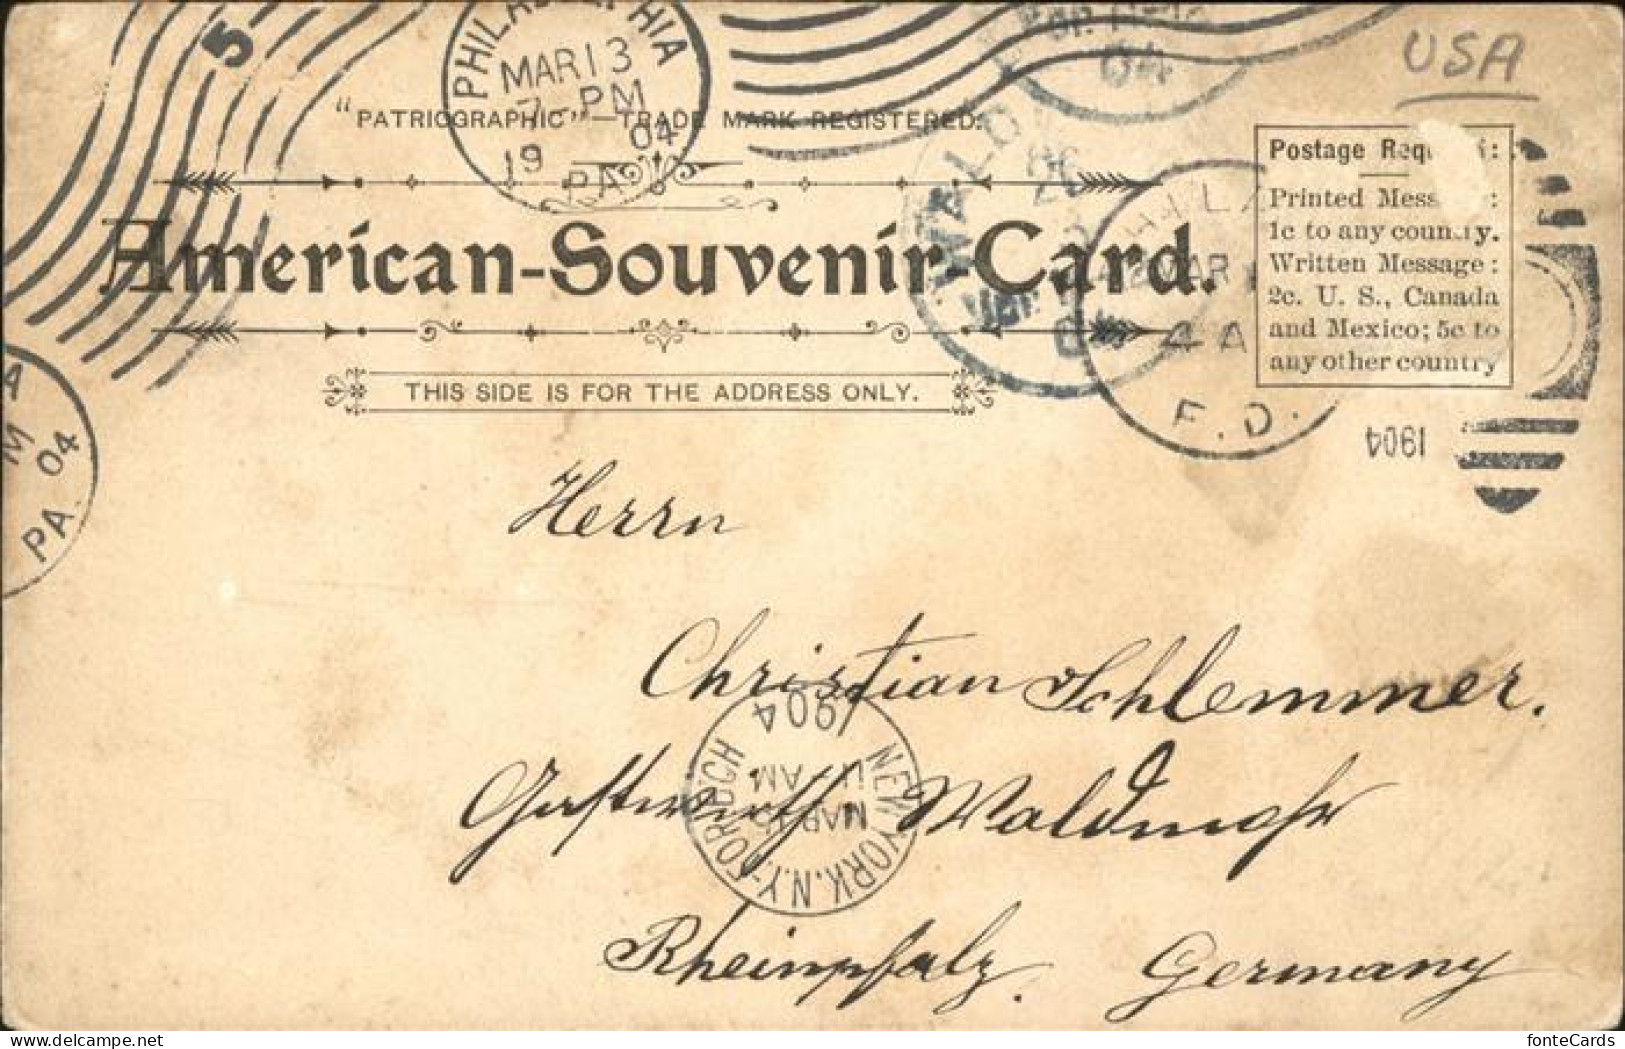 USA
PHILADELPHIA
MAR 13
7-PM
19 04
PA
5
"PATRIOGRAPHIC"—TRADE MARK REGISTERED.
American-Souvenir-Card.
THIS SIDE IS FOR THE ADDRESS ONLY.
Postage Req
Printed Mess :
1c to any country.
Written Message:
2c. U. S., Canada
and Mexico; 5c to
any other country
04
MAR
4 A
F. D.
1904
A
M
04
PA.
Herrn
Christian Schlemmer.
Gastwirth Waldmohr
Rheinpfalz. Germany
NEW YORK. N.Y.-FOR BCH
MAR
11 AM
1904
fonteCards